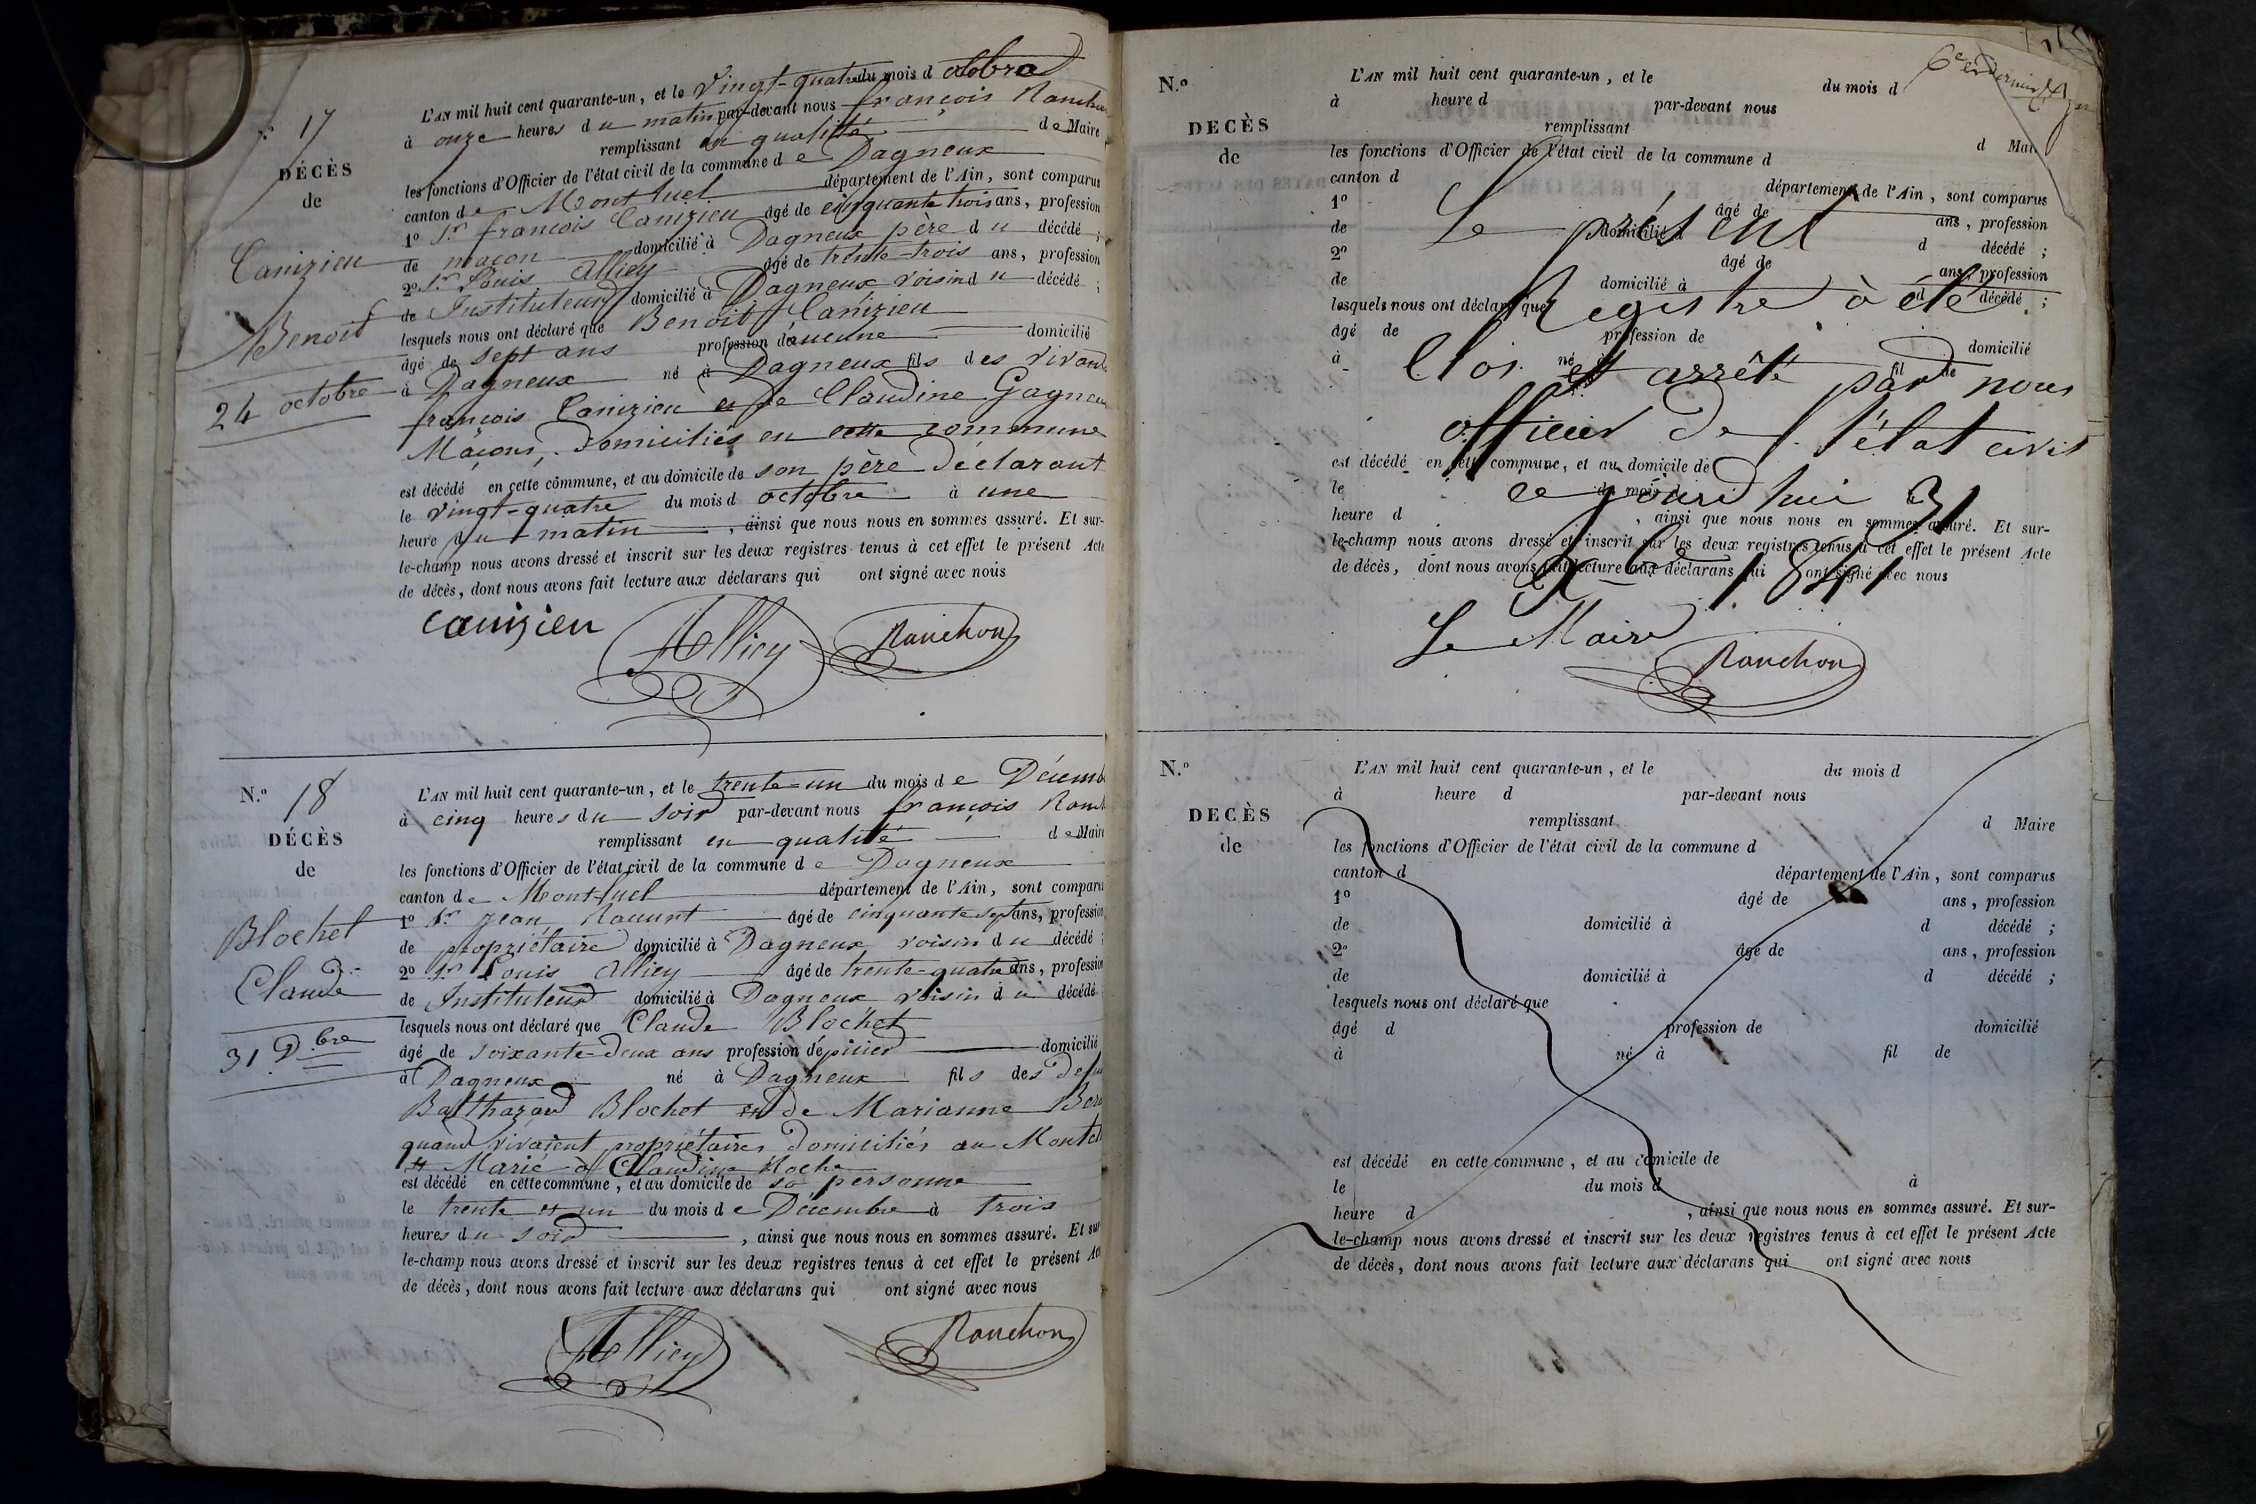 N.o 17
DÉCÈS
de
Canizieu
Benoit
24 octobre
L'AN mil huit cent quarante-un, et le vingt-quatre du mois d octobre
à onze heures du matin par-devant nous françois
remplissant en qualité de Maire
les fonctions d'Officier de l'état civil de la commune de Dagneux
canton de Montluel département de l'Ain, sont comparus
1o Sr françois Canizieu âgé de cinquante trois ans, profession
de maçon domicilié à Dagneux père du décédé ;
2o Sr Louis Alliey âgé de trente-trois ans, profession
de Instituteur domicilié à Dagneux voisin du décédé ;
lesquels nous ont déclaré que Benoit Canizieu
âgé de sept ans profession d'aucune domicilié
à Dagneux né à Dagneux fils des vivants
françois Canizieu et de Claudine
Maçons, domiciliés en cette commune
est décédé en cette commune, et au domicile de son père déclarant
le vingt-quatre du mois d octobre à une
heure du matin, ainsi que nous nous en sommes assuré. Et sur-
le-champ nous avons dressé et inscrit sur les deux registres tenus à cet effet le présent Acte
de décès, dont nous avons fait lecture aux déclarans qui ont signé avec nous
canizieu Alliey Ranchon
N.o 18
DÉCÈS
de
Blochet
Claude
31 Dbre
L'AN mil huit cent quarante-un, et le trente-un du mois de
à cinq heures du soir par-devant nous françois
remplissant en qualité de Maire
les fonctions d'Officier de l'état civil de la commune de Dagneux
canton de Montluel département de l'Ain, sont comparus
1o Sr Jean âgé de cinquante sept ans, profession
de propriétaire domicilié à Dagneux voisin du décédé ;
2o Sr Louis Alliey âgé de trente-quatre ans, profession
de Instituteur domicilié à Dagneux voisin du décédé
lesquels nous ont déclaré que Claude Blochet
âgé de soixante-deux ans profession d'épicier domicilié
à Dagneux né à Dagneux fils des
Balthazard Blochet et de Marianne
quand vivaient propriétaires domiciliés au
et Marié à Claudine Roche
est décédé en cette commune, et au domicile de sa personne
le trente et un du mois de Décembre à trois
heures du soir, ainsi que nous nous en sommes assuré. Et sur
le-champ nous avons dressé et inscrit sur les deux registres tenus à cet effet le présent
de décès, dont nous avons fait lecture aux déclarans qui ont signé avec nous
Alliey Ranchon
6e et dernier
N.o
DECÈS
de
L'AN mil huit cent quarante-un, et le du mois d
à heure d par-devant nous
remplissant d
les fonctions d'Officier de l'état civil de la commune d
canton d département de l'Ain, sont comparus
1o âgé de ans, profession
de domicilié à d décédé ;
2o âgé de ans, profession
de domicilié à d décédé ;
lesquels nous ont déclaré que
âgé de profession de domicilié
à né à fil de
est décédé en cette commune, et au domicile de
le du mois d
heure d, ainsi que nous nous en sommes assuré. Et sur-
le-champ nous avons dressé et inscrit sur les deux registres tenus à cet effet le présent Acte
de décès, dont nous avons fait lecture aux déclarans qui ont signé avec nous
Le présent
Registre à été
Clos et arrêté par nous
officier de l'état civil
ce jourd'hui 31
Xbre 1841
Le Maire
Ranchon
N.o
DECÈS
de
L'AN mil huit cent quarante-un, et le du mois d
à heure d par-devant nous
remplissant d Maire
les fonctions d'Officier de l'état civil de la commune d
canton d département de l'Ain, sont comparus
1o âgé de ans, profession
de domicilié à d décédé ;
2o âgé de ans, profession
de domicilié à d décédé ;
lesquels nous ont déclaré que
âgé d profession de domicilié
à né à fil de
est décédé en cette commune, et au domicile de
le du mois d à
heure d, ainsi que nous nous en sommes assuré. Et sur-
le-champ nous avons dressé et inscrit sur les deux registres tenus à cet effet le présent Acte
de décès, dont nous avons fait lecture aux déclarans qui ont signé avec nous